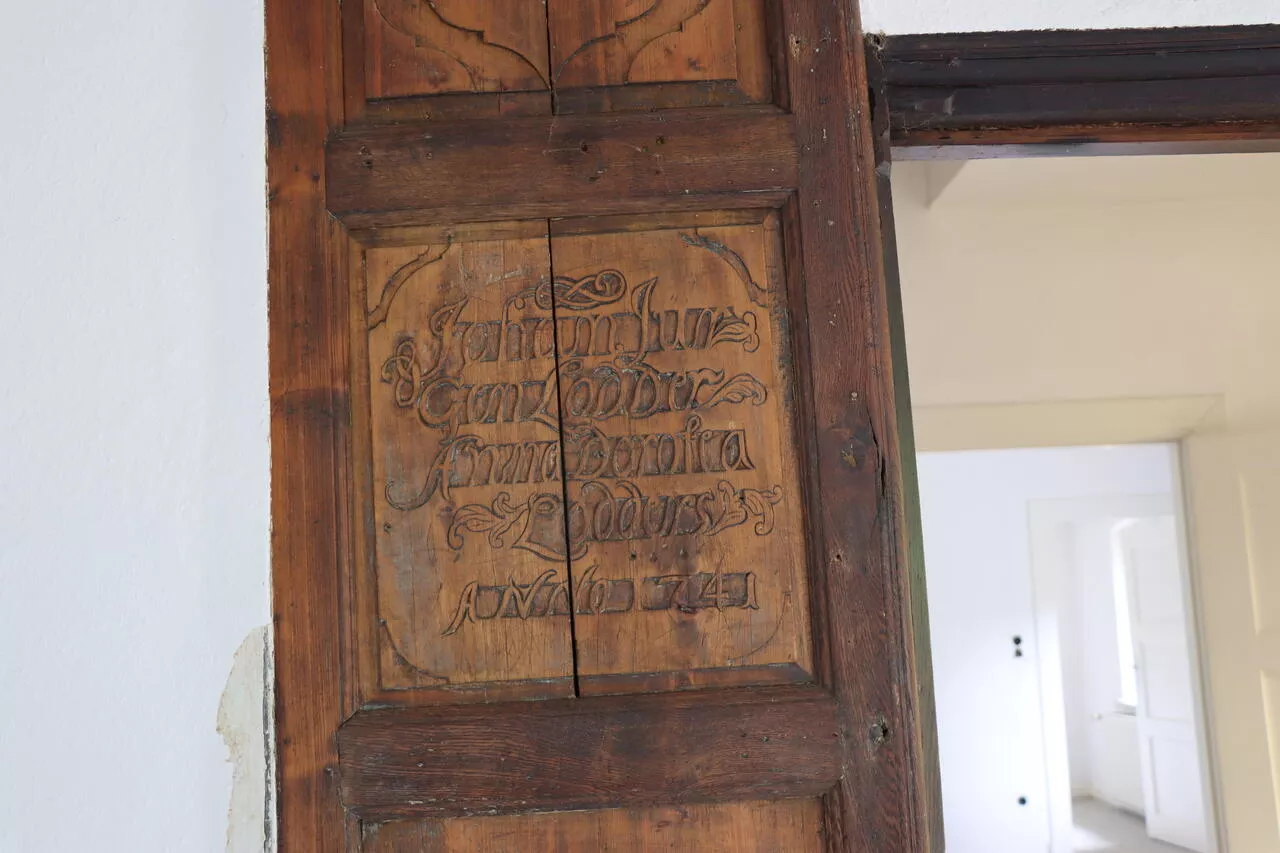 Johann Jun
Gen Lödder
Anna Dorotea
Lödders
ANNO 1741